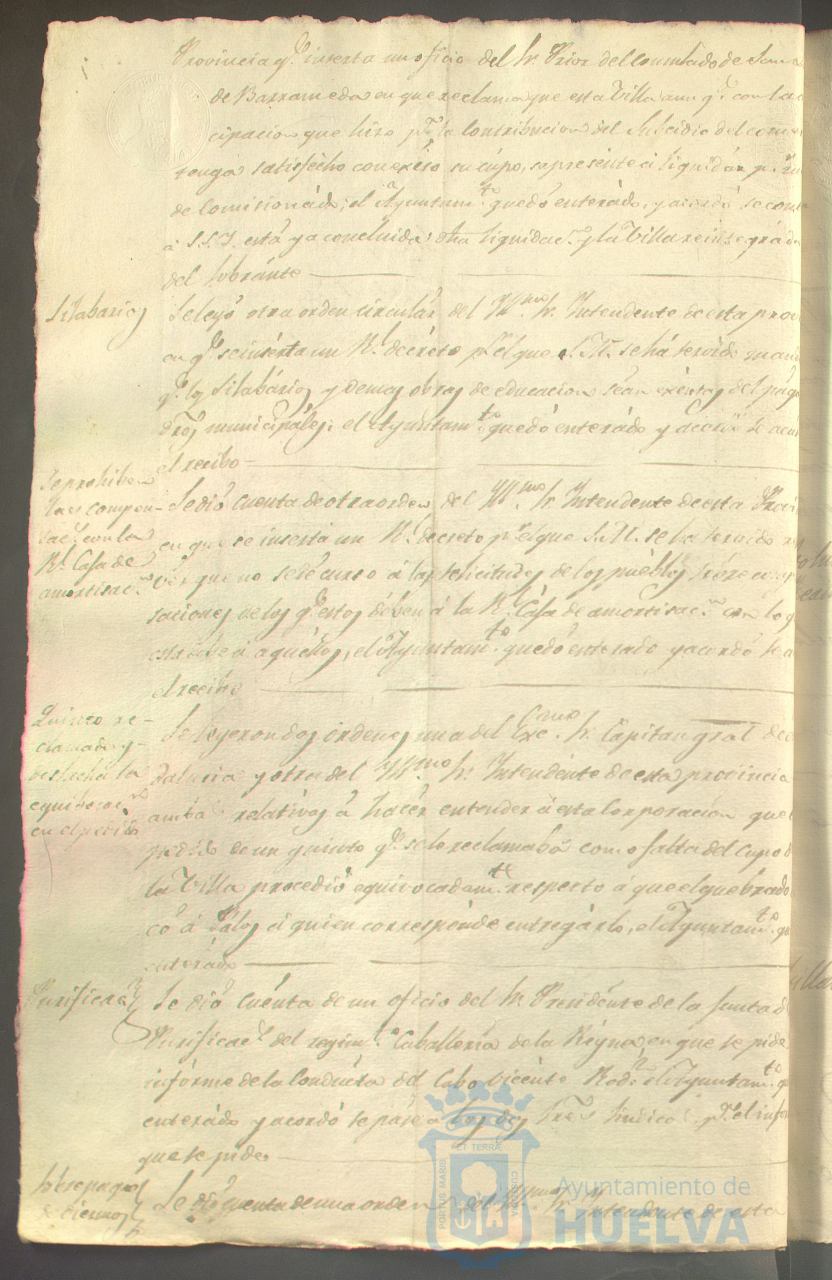 Provincia q.e inserta un oficio del Sr. Prior del Consulado de San
de Barrameda en que reclama que esta Villa aun q.e con la
cipacion que hizo p.a la Contribucion del Subsidio del comer
tenga satisfecho con exceso su cupo, se presente a liquidar p.r
de Comisionado; el Ayuntam.to quedó enterado, y acordó se con
á S.S.Y. está ya concluida dha liquidac.n y la Villa reintegrada
del sobrante
Silabarios
Se leyó otra orden circular del Yll.mo Sr. Intendente de esta prov
en q.e se inserta un R.l decreto p.r el que S.M. se há servido man
q.e los Silabarios y demas obras de educacion sean exéntas del pago
dros municipáles; el Ayuntam.to quedó enterádo y acordó se acu
el recibo
Se prohiben
las compen-
sac.s con la
R.l Caja de
amortisac.n
Se dió cuenta de otra orden del Yll.mo Sr. Intendente de esta Provi
en que se inserta un R.l decreto p.r el que S.M. se ha servido
ver que no se dé curso á las solicitudes de los pueblos sobre comp
saciones de los q.e estos deben á la R.l Caja de amortisac.n con lo q
á aquéllos, el Ayuntam.to quedó enterado y acordó se a
el recibo
Quinto re-
clamado y
la
equibocac.n
en el pedido
Se leyeron dos órdenes una del Exc.mo Sr. Capitan gral de
dalucia y otra del Yll.mo Sr. Intendénte de esta provincia
ambas relativos á hacér entender á esta Corporacion que el
pedido de un quinto q.e se le reclamaba como falta del cupo d
la Villa procedió equivocadam.te respecto á que el quebrado
có á Palos á quien correspónde entregárlo, el Ayuntam.to qu
enterado
Purificac.n
Se dió cuénta de un oficio del Sr. Presidénte de la Junta d
Purificac.n del regim.to Caballeria de la Reyna en que se pide
infórme de la Condúcta del Cabo Vicénte Rodz. el Ayuntam.to q
enterádo y acordó se páse a los dos Sres Sindicos p.a el infor
que se pide
sobre pagos
de diezmos
Se dió cuenta de una orden del Yll.mo Sr. Yntendente de esta
PORTUS MARIS
ET TERRÆ
CUSTODIA
Ayuntamiento de
HUELVA